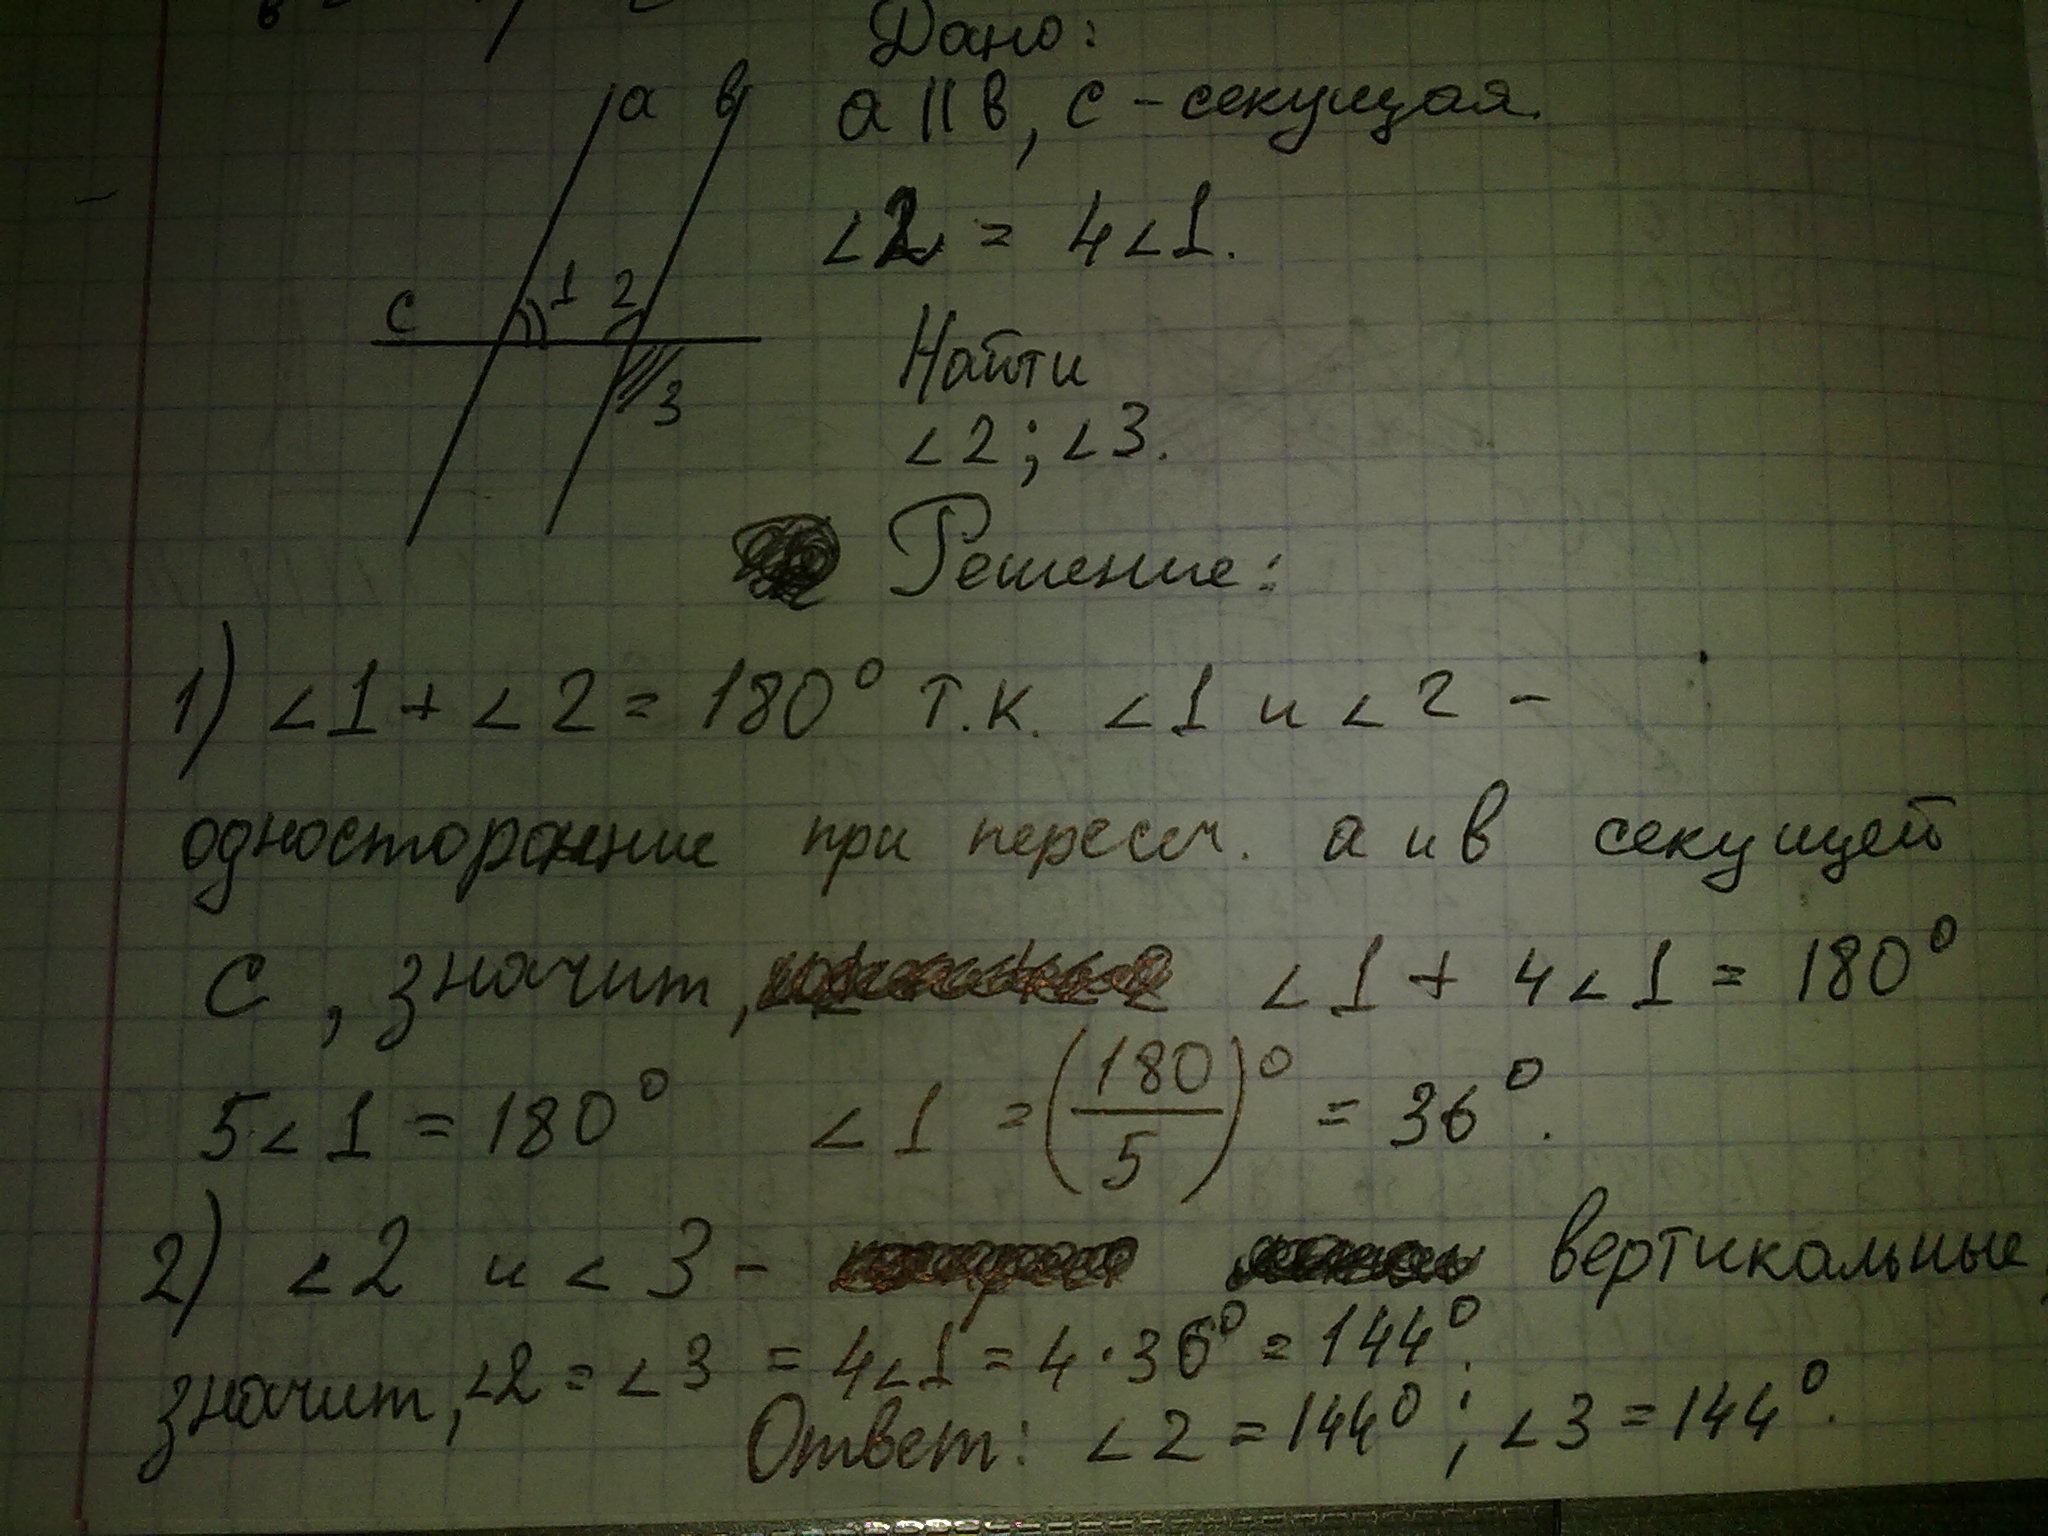 Дано:
a b a || b, c - секущая.
∠2 = 4∠1.
c 1 2
3
Найти
∠2; ∠3.
Решение:
1) ∠1 + ∠2 = 180° т.к. ∠1 и ∠2 -
односторонние при пересеч. a и b секущей
c, значит, ∠1 + 4∠1 = 180°
5∠1 = 180° ∠1 = (180/5)° = 36°.
2) ∠2 и ∠3 - вертикальные,
значит, ∠2 = ∠3 = 4∠1 = 4·36° = 144°.
Ответ: ∠2 = 144°; ∠3 = 144°.